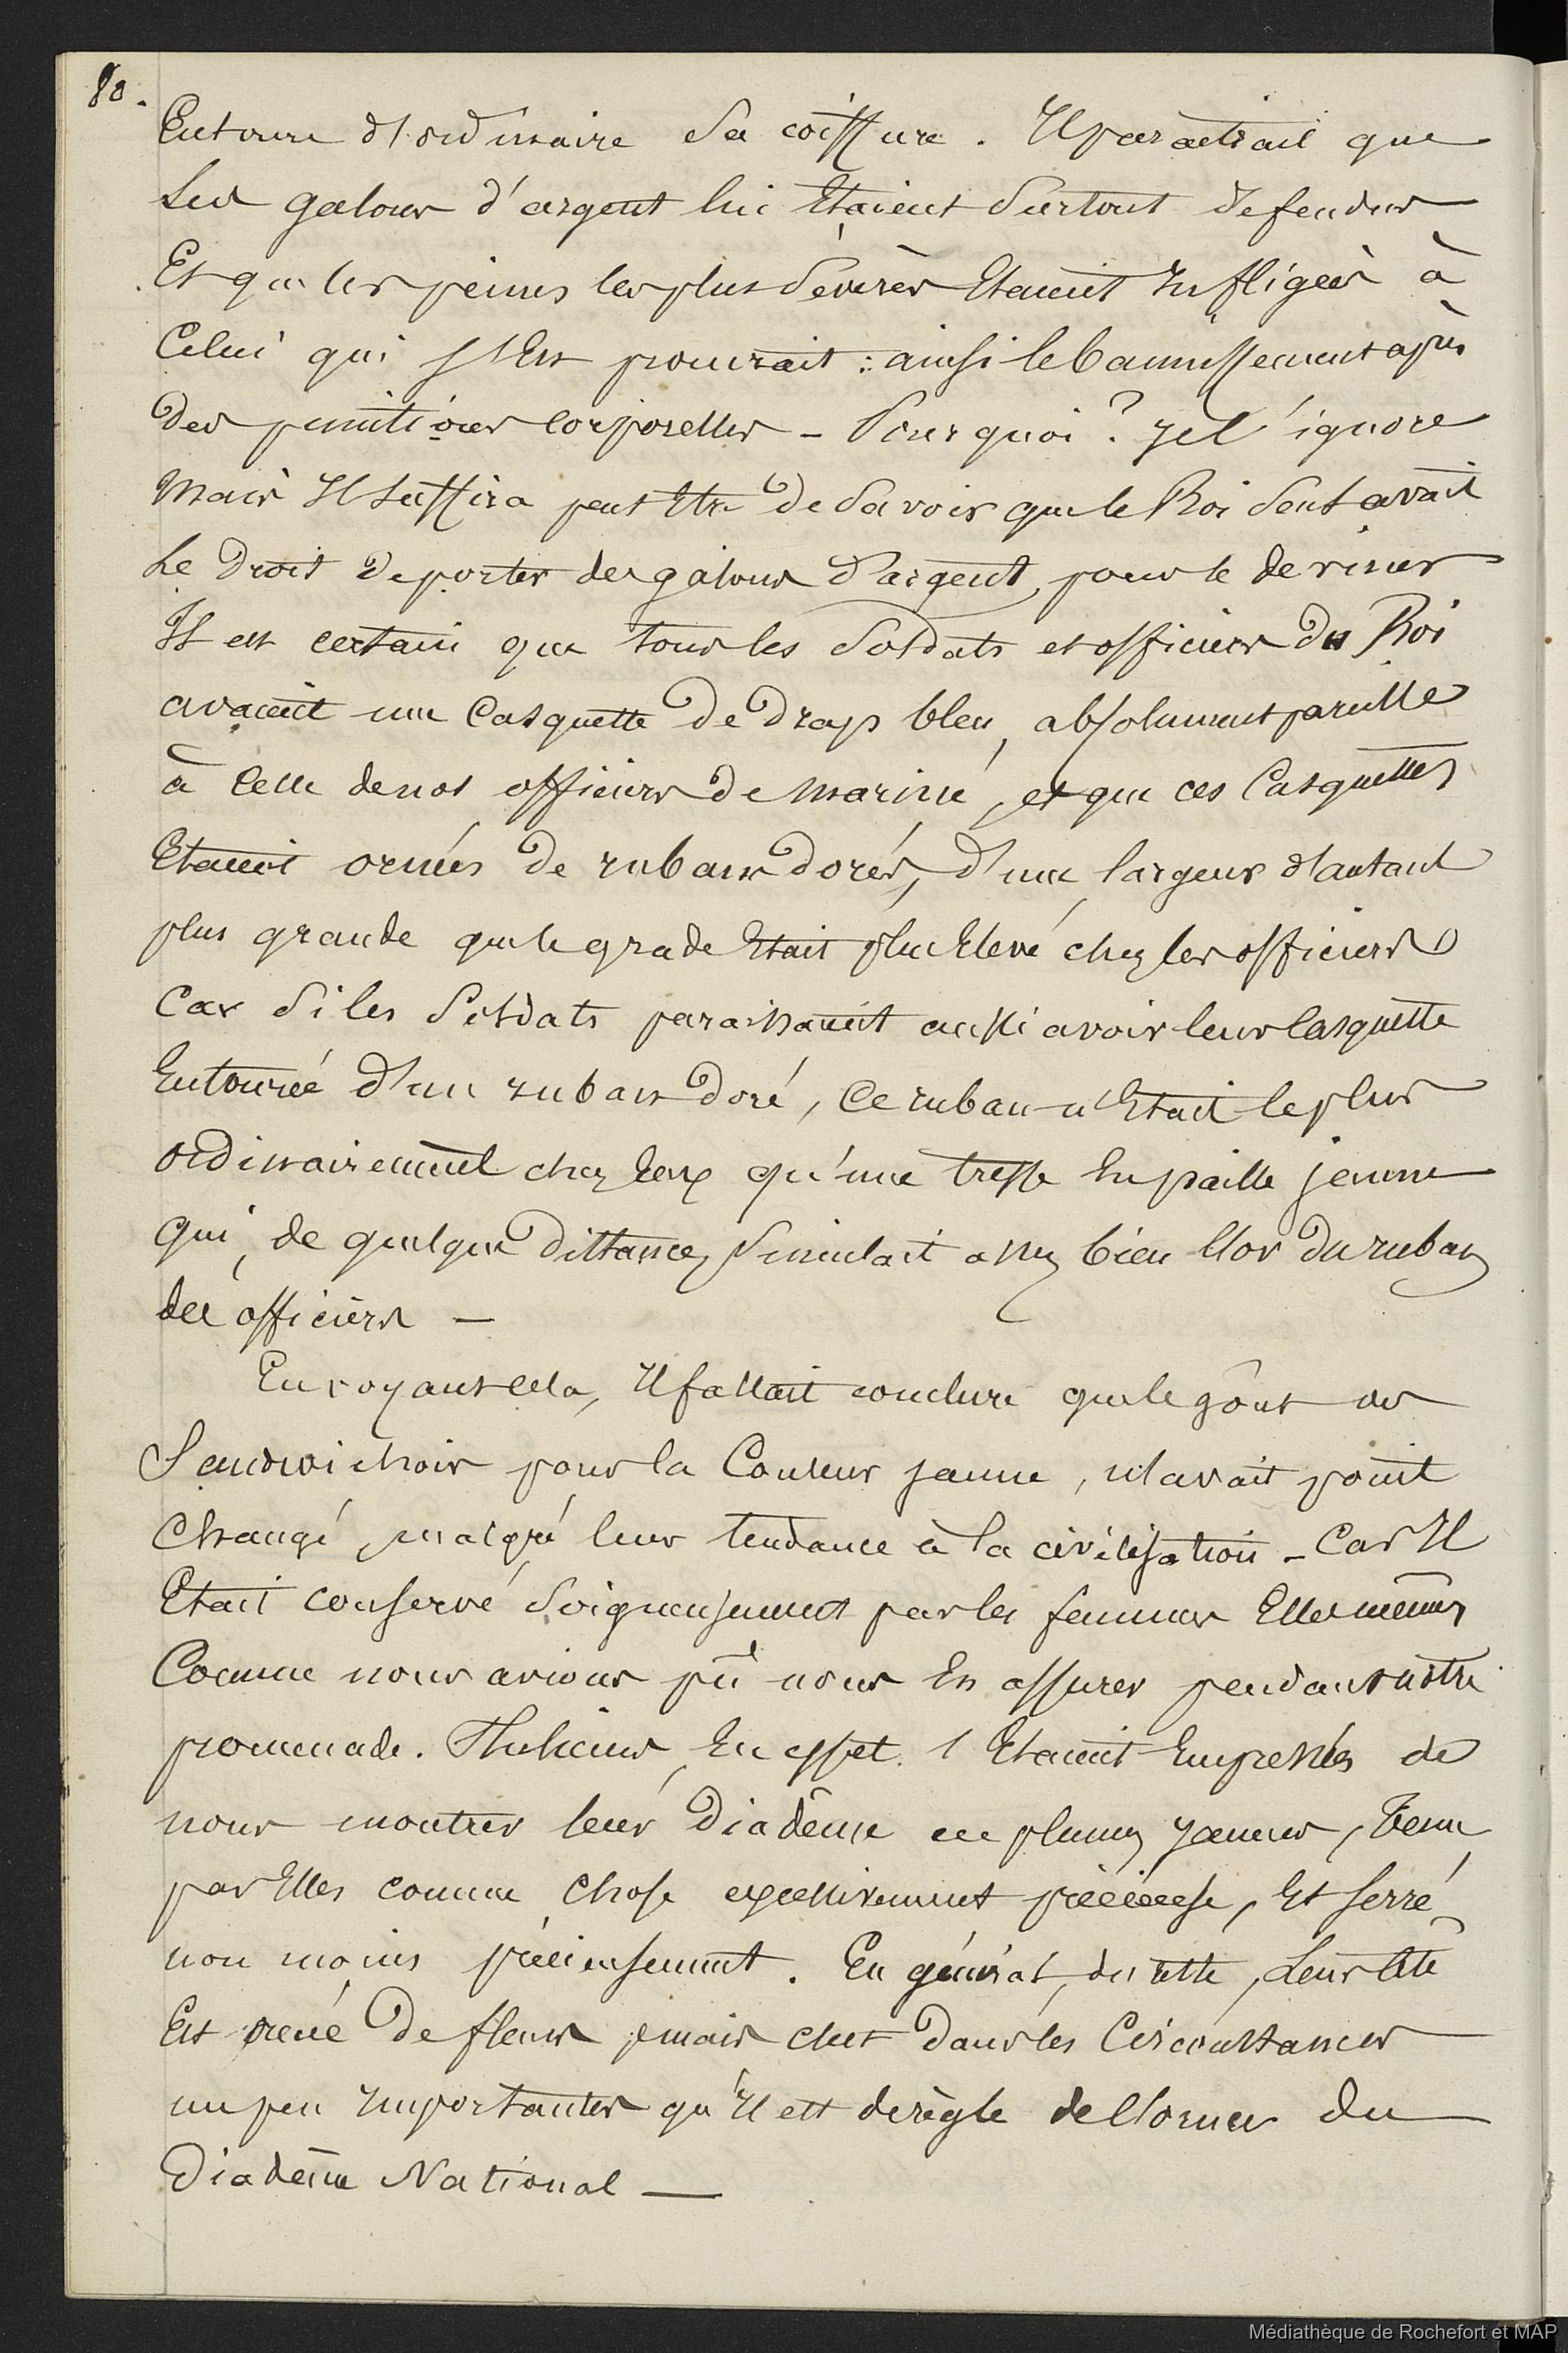 80.
Entoure d'ordinaire sa coiffure. Il paraîtrait que
les galons d'argent lui Etaient surtout defendus
Et que les peines les plus sévères Etaient Infligées à
Celui qui s'En pourvait : ainsi le bannissement après
des punitions corporelles - Pourquoi ? Je l'ignore
Mais Il suffira peut Etre de savoir que le Roi seul avait
Le Droit de porter des galons d'argent, pour le deviner
Il est certain que tous les soldats et officiers du Roi
avaient une Casquette de Drap bleu, absolument pareille
à Celle de nos officiers de marine, et que ces Casquettes
Etaient ornées de rubans dorés, d'une largeur d'autant
plus grande que le grade Etait plus Elevé chez les officiers
Car si les soldats paraissaient aussi avoir leur Casquette
Entourée d'un ruban doré, Ce ruban n'Etait le plus
ordinairement chez Eux qu'une tresse En paille jaune
qui, de quelque distance, simulait assez bien l'or du ruban
des officiers —
En voyant cela, Il fallait conclure que le goût des
Sandwichois pour la Couleur jaune, n'avait point
Changé, malgré leur tendance à la civilisation - Car Il
Etait conservé soigneusement par les femmes Elles mêmes
Comme nous avions pû nous En assurer pendant notre
promenade. Plusieurs, En effet, s'Etaient Empressées de
nous montrer leur Diadême en plumes jaunes, tenu
par Elles comme Chose excessivement précieuse, Et serré
non moins précieusement. En général, du reste, Leur tête
Est ornée De fleurs mais c'est dans les Circonstances
un peu Importantes qu'Il est de règle de l'orner du
Diadême National —
Médiathèque de Rochefort et MAP